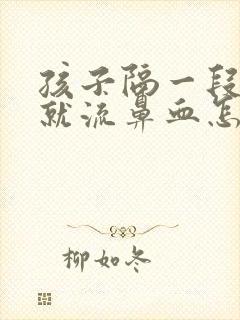 孩子隔一段
就流鼻血怎
柳如冬